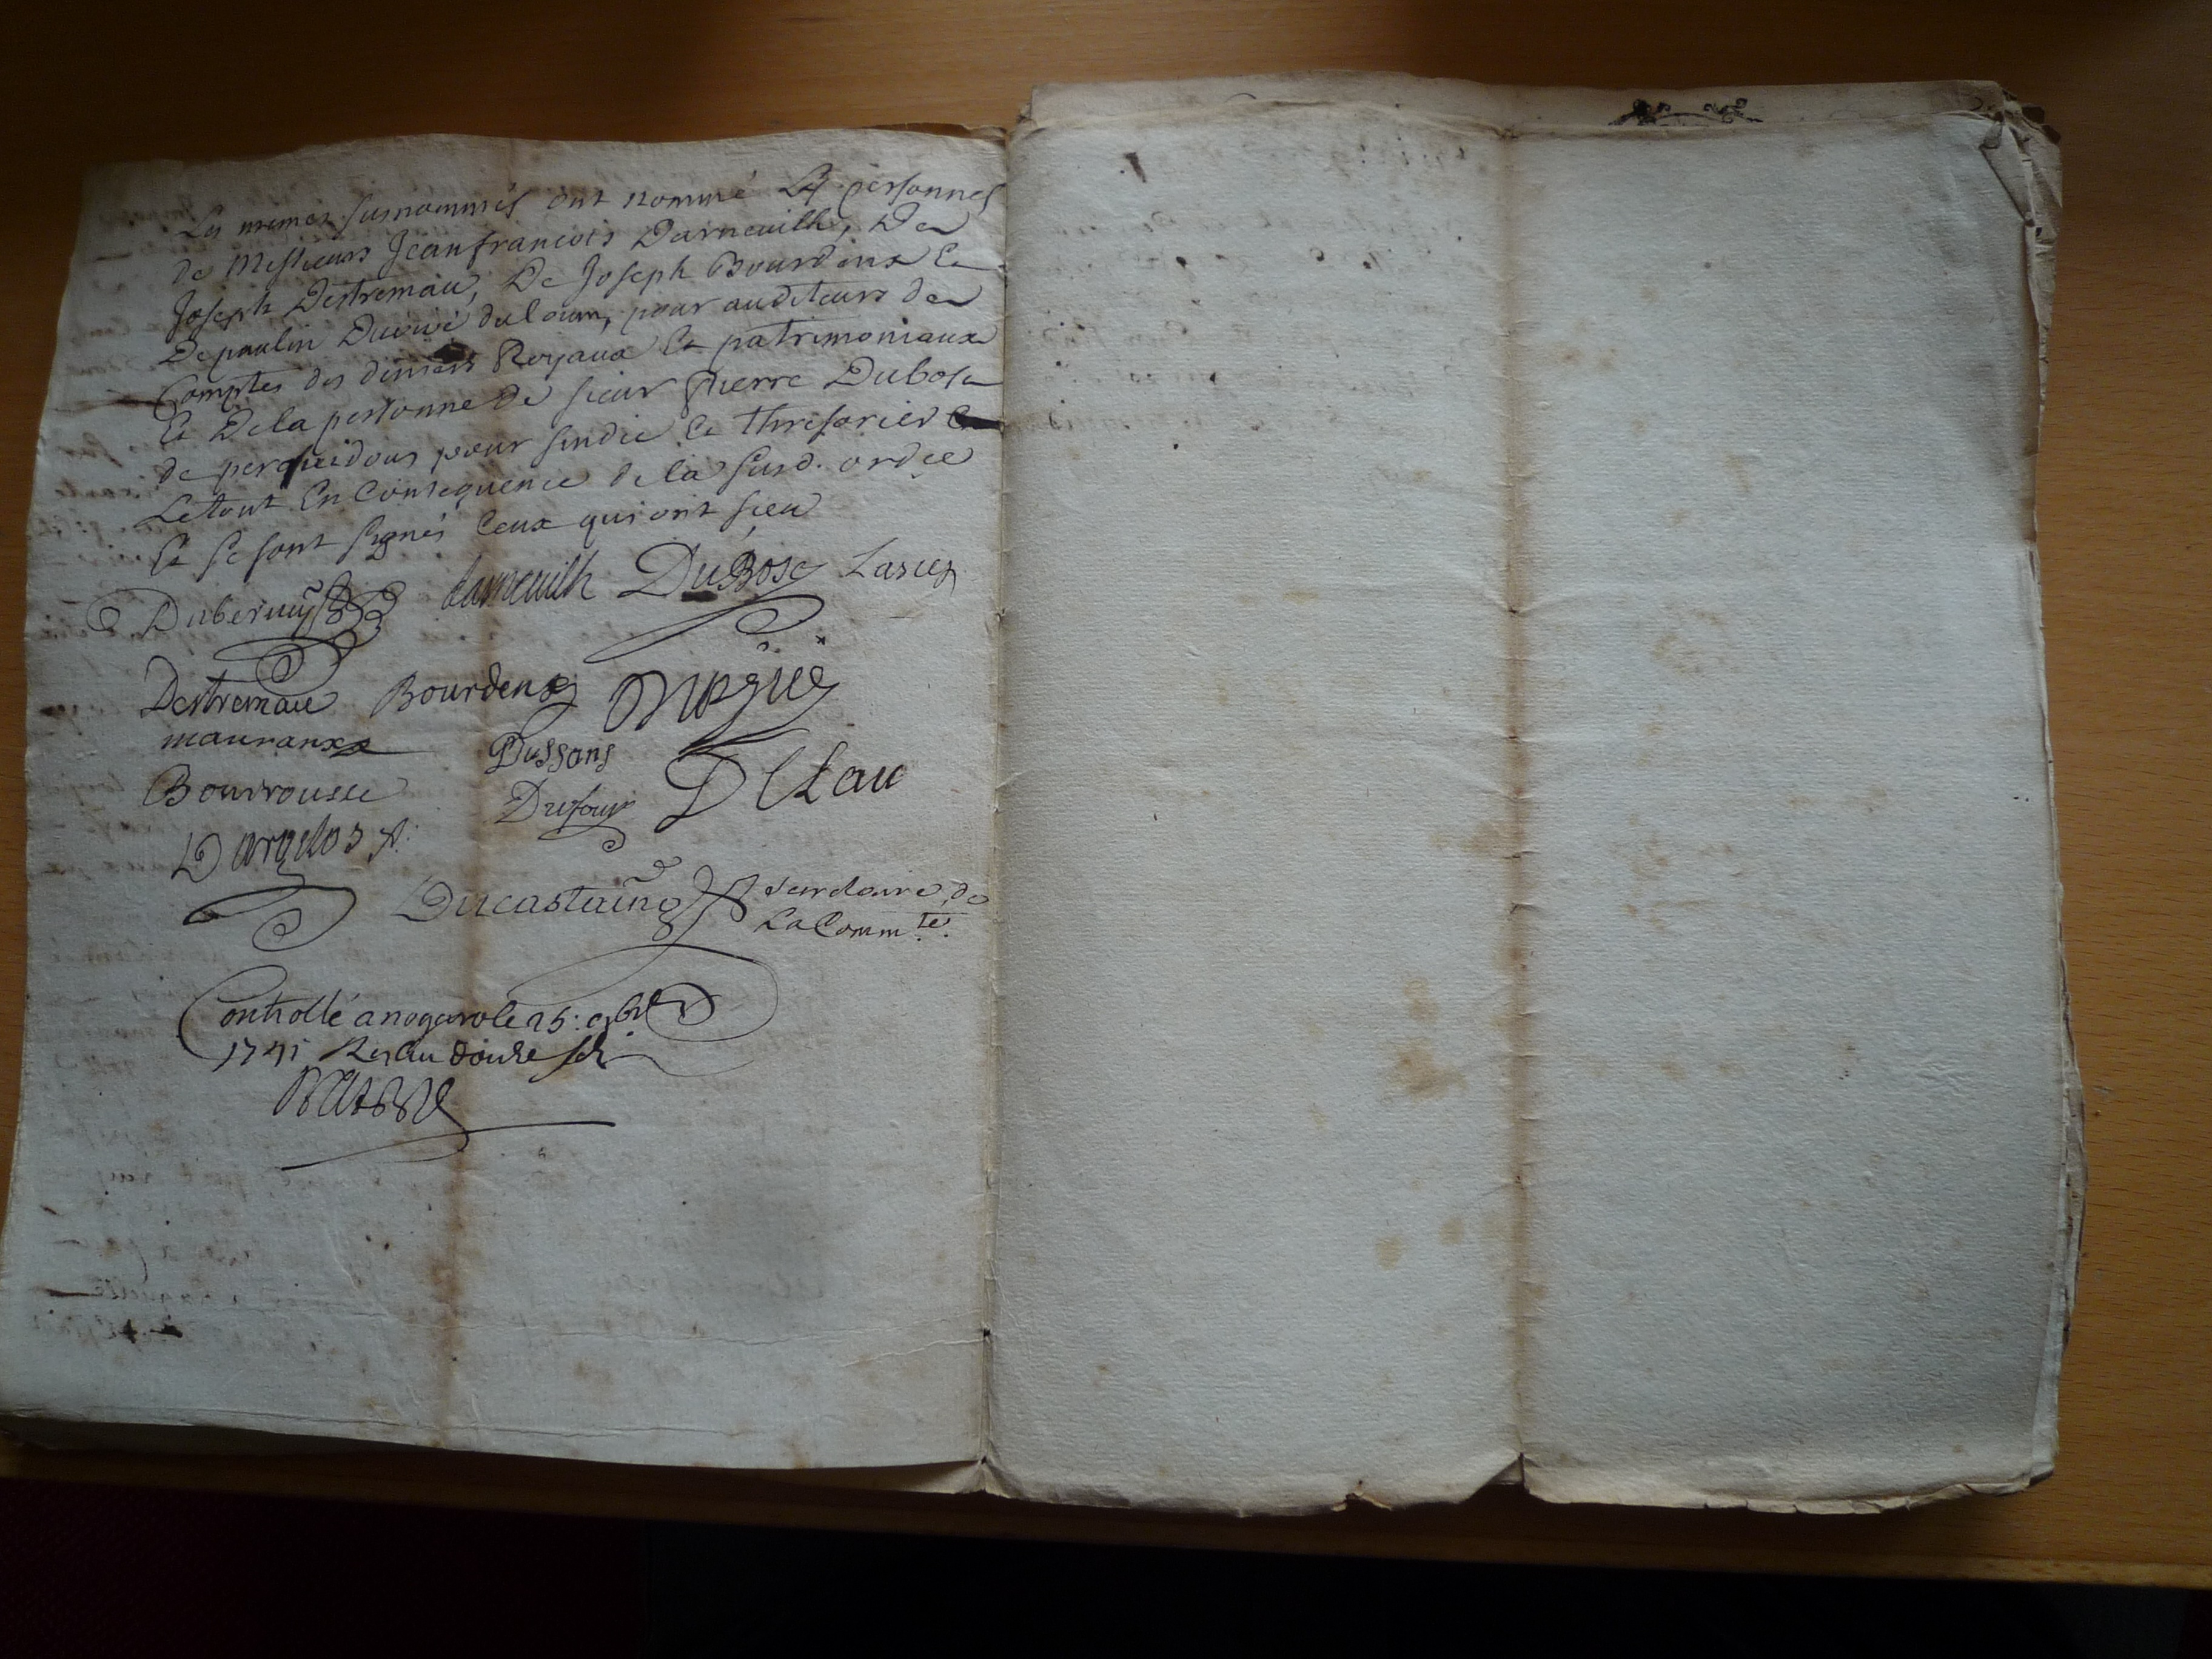 Les mimes surnommés ont nommé Les personnes
de Messieurs Jean francois Darneuilh, De
Joseph Destremau, De Joseph Bourdens Et
De paulin du loum, pour auditeurs de
Comptes des deniers Royaux Et patrimoniaux
Et De la personne de sieur Pierre Dubosc
de perquidous pour sindic Et thresorier
Le tout En Consequence de la susd. ordce
Et se sont signés Ceux qui ont sceu
Dubernuy Darneuilh DuBosc
Destremau Bourdens
mauranx Dussans
Bourrousse Dufour DLau
Dargelos
Ducastaing secretaire de
La Comm.té
Controllé a nogaro le 25: 9bre
1741 Recu douze sols